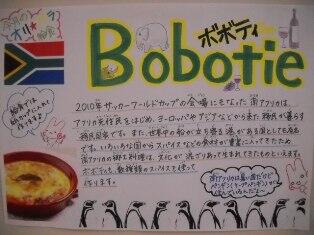 ボボティ
Bobotie
2010年サッカーワールドカップの会場にもなった南アフリカは、
アフリカ先住民をはじめ、ヨーロッパやアジアなどから来た移民が暮らす
移民国家です。また、世界中の船が立ち寄る港がある国としても有名
です。いろいろな国からスパイスなどの食材が豊富に入ってきたため、
南アフリカの郷土料理は、文化が混ざりあって生まれてきたものといえます。
ボボティも、数種類のスパイスを使って
作ります。
給食では
カップに入れて
作りますよ
南アフリカは暑い国だけど
ペンギン(ケープペンギン)が